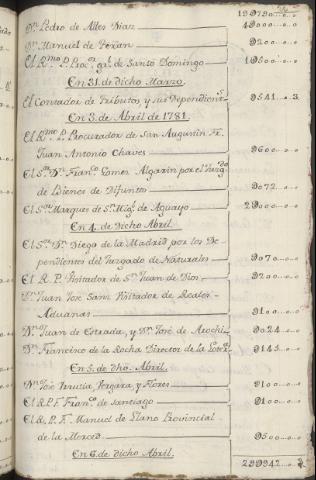 199790..."..."
Dn. Pedro de Alles Dias 4000..."..."
Dn. Manuel de Teran 9200..."..."
El Rmo. P. Procr. gral. de Santo Domingo 10500..."..."
En 31. de dicho Marzo.
El Contador de Tributos y sus Dependientes 9541..."..3
En 3. de Abril de 1781.
El Rmo. P. Procurador de San Augustin Fr.
Juan Antonio Chaves 9600..."..."
El Sor. Dn. Franco. Gomez Algarin por el Juzgdo.
de Bienes de Difuntos 9072..."..."
El Sor. Marques de Sn. Migl. de Aguayo 2000..."..."
En 4. de dicho Abril
El Sor. Dn. Diego de la Madrid por los De-
pendientes del Juzgado de Naturales 9070..."..."
El R. P. Visitador de Sn. Juan de Dios 9200..."..."
Dn. Juan Jose Sanz Visitador de Reales
Aduanas 9100..."..."
Dn. Juan de Estrada, y Dn. Jose de Arochi 9024..."..."
Dn. Francisco de la Rocha Director de la 9145..."..."
En 5. de dho. Abril.
Dn. Jose Vergara, y Flores 9100..."..."
El R. P. F. Franco. de Santiago 9100..."..."
El R. P. Fr. Manuel de Llano Provincial
de la Merced 9500..."..."
En 6. de dicho Abril.